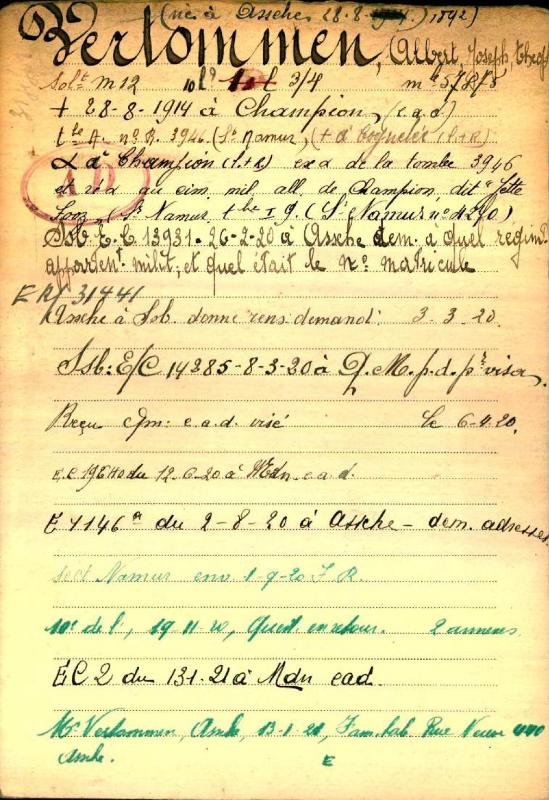 (né à Assche 28.8. 1892)
Bertommen, Albert, Joseph, théop
Solt m 12 10 lg 3/4 m le 57878
+ 28-8-1914 à Champion, (e.a.d)
tbe A. no R. 3946 (St Namur,
à Champion (1+R) exa de la tombe 3946
AD
au cim. mil. all. de Champion dit
(St Namur, tbe I 9. (St Namur no 4240)
Ssb. E.C 13931-26-2-20 à Assche dem. à quel régimt
appartent milit, et quel était le no matricule
31441
Assche à Ssb. donne rens. demandé. 3.3.20.
Ssb: E/C 14385-8-3-20 à Q.M. p.d. pr viser.
Reçu e.a.d visé le 6-4.20.
du 12.6.20 à Mdn e.a.d.
E 7146 du 2-8-20 à Assche - dem. adresses.
Sect Namur env. 1-9-20 J R.
19 11 20, Quest. en retour. 2 annexes
EC 2 du 131.21 à Mdn ead.
Mr Vertommen, Assche, 13-1-21, Fam. hab. Rue Neuve 440
Assche. E